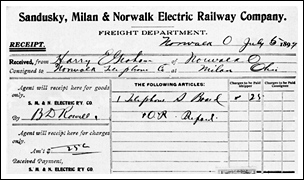 Sandusky, Milan & Norwalk Electric Railway Company.
FREIGHT DEPARTMENT.
RECEIPT.
Norwalk O July 6 189
Received, from Harry E Graham of Norwalk O
Consigned to Norwalk Telephone Co at Milan Ohio
Agent will receipt here for goods only.
S. M. & N. ELECTRIC R'Y. CO.
By B D
Agent will receipt here for charges only.
Am't 25¢
Received Payment,
S. M. & N. ELECTRIC R'Y. CO.
THE FOLLOWING ARTICLES:
Charges to be Paid Shipper
Charges to be Prepaid
1 Telephone S Board 25
O.R.